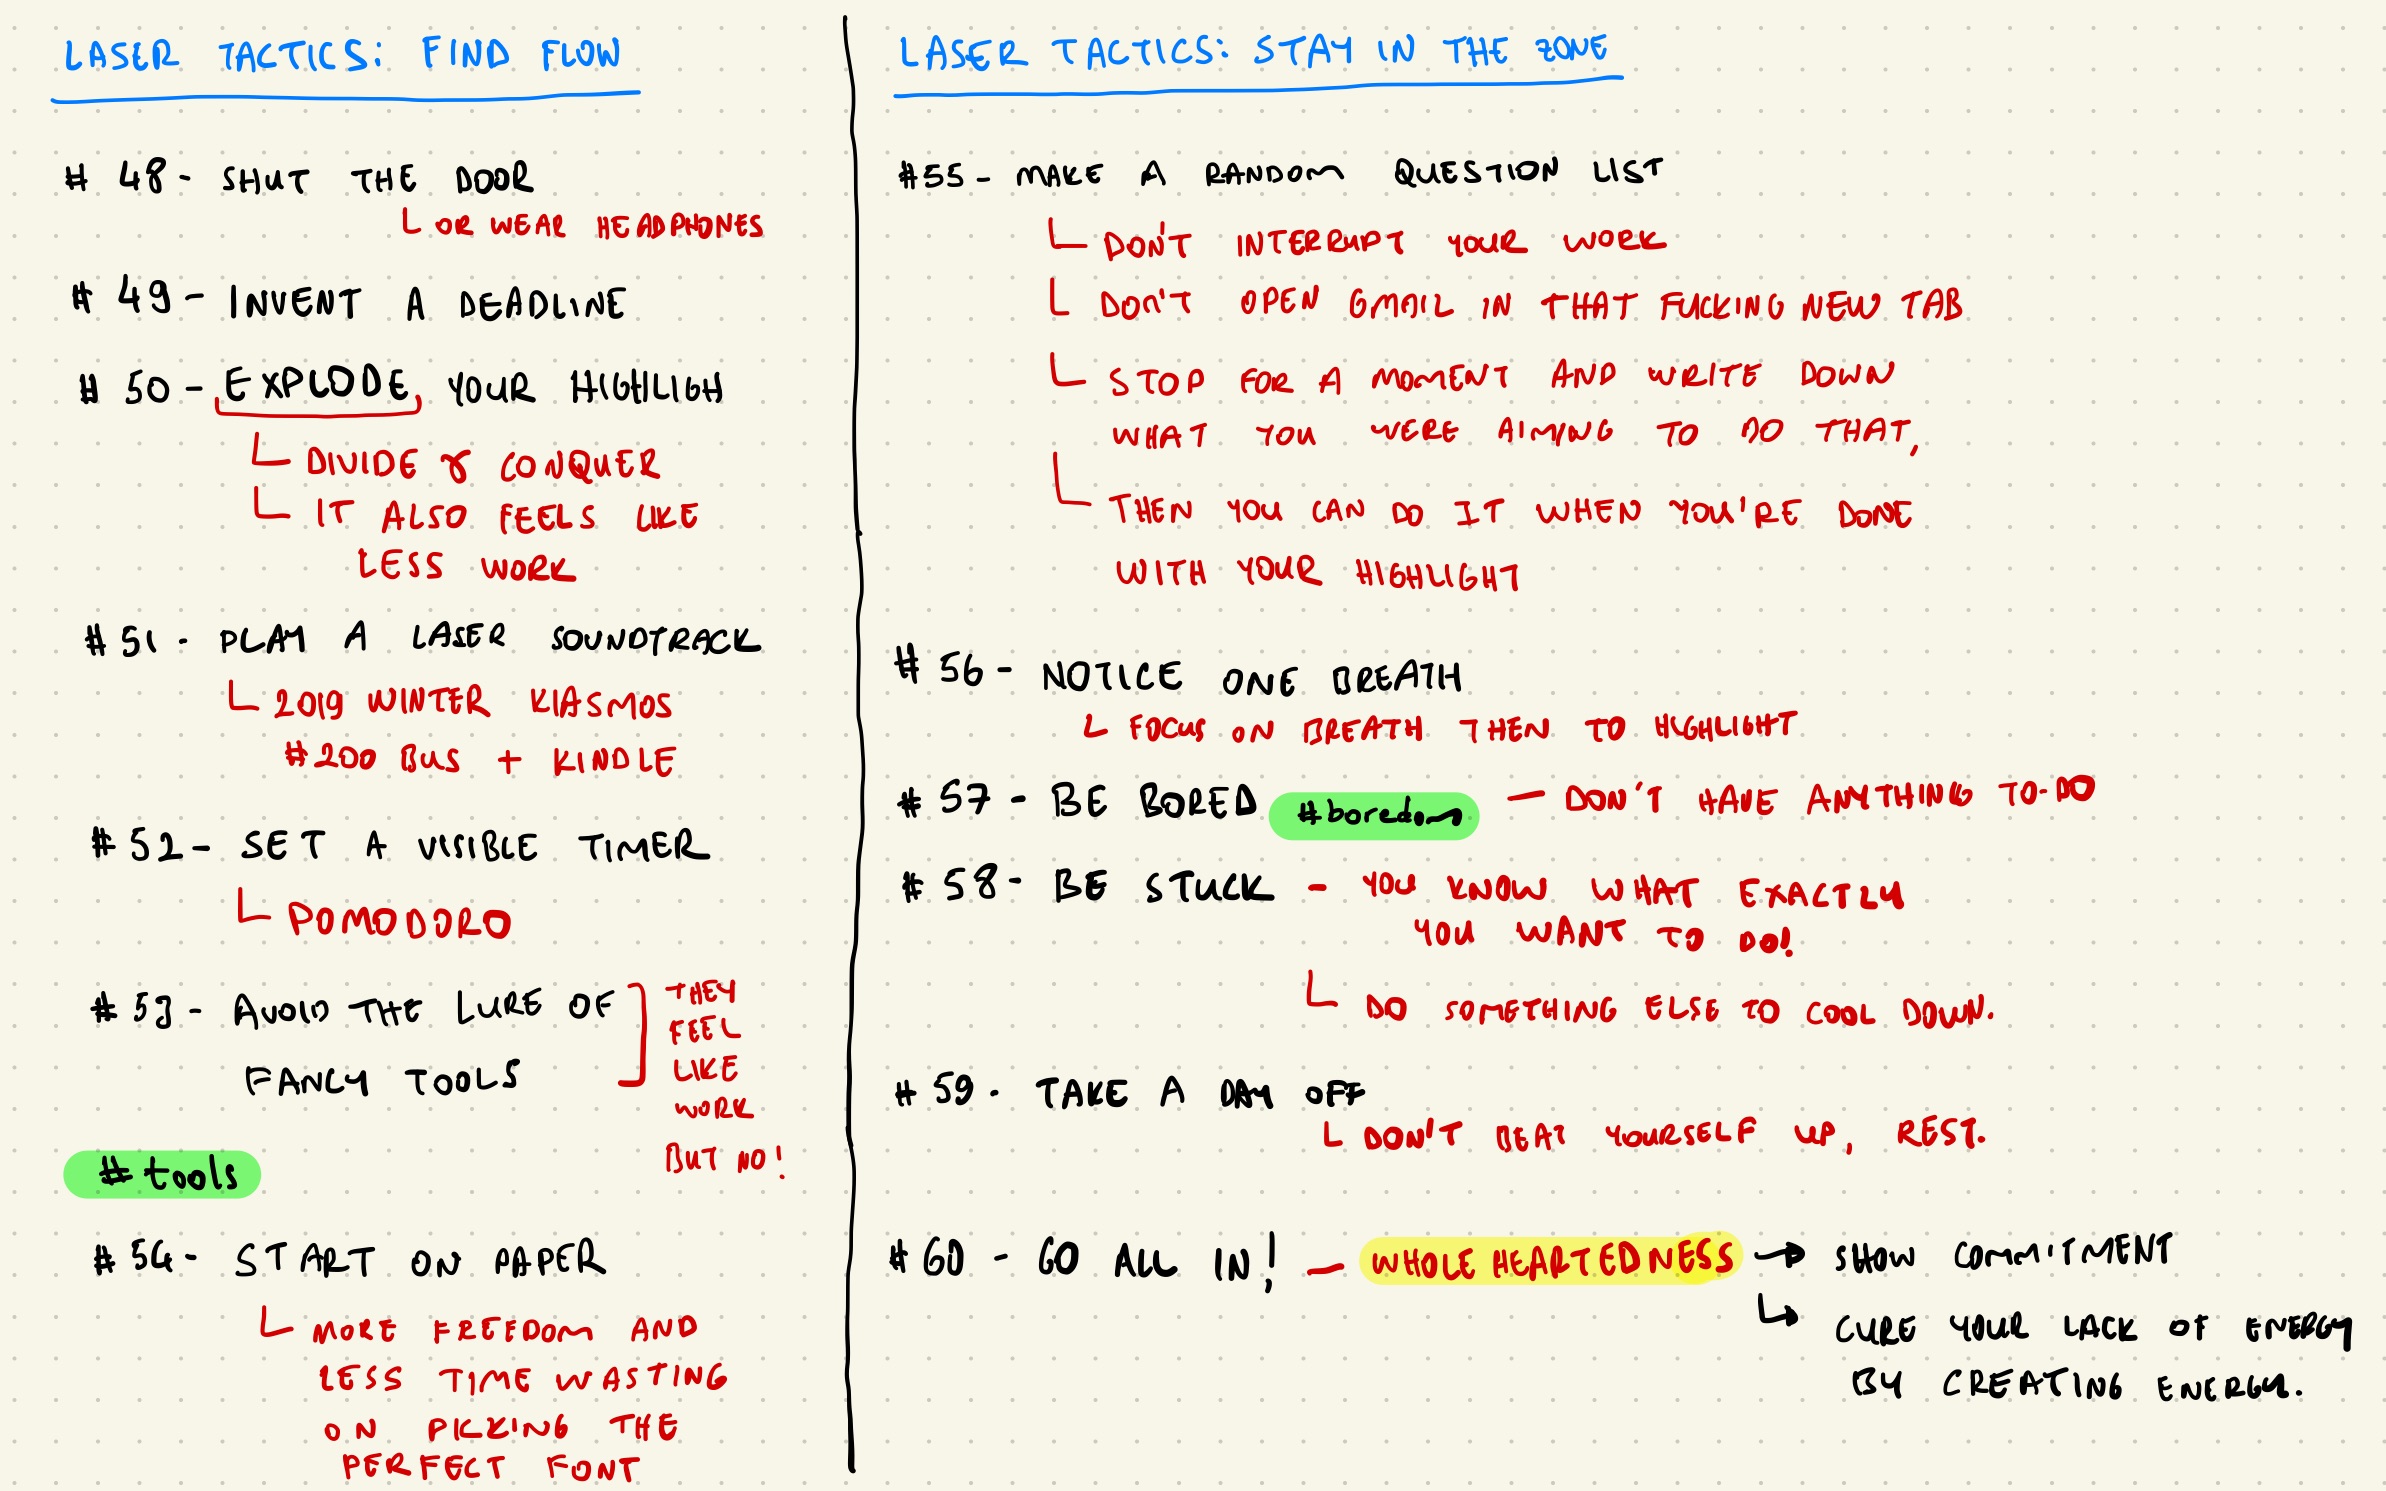 LASER TACTICS: FIND FLOW
# 48 - SHUT THE DOOR
OR WEAR HEADPHONES
# 49 - INVENT A DEADLINE
# 50 - EXPLODE YOUR HIGHLIGH
DIVIDE & CONQUER
IT ALSO FEELS LIKE
LESS WORK
# 51 - PLAY A LASER SOUNDTRACK
2019 WINTER KIASMOS
#200 BUS + KINDLE
# 52 - SET A VISIBLE TIMER
POMODORO
# 53 - AVOID THE LURE OF
FANCY TOOLS
THEY
FEEL
LIKE
WORK
BUT NO!
#tools
# 54 - START ON PAPER
MORE FREEDOM AND
LESS TIME WASTING
ON PICKING THE
PERFECT FONT
LASER TACTICS: STAY IN THE ZONE
#55 - MAKE A RANDOM QUESTION LIST
DON'T INTERRUPT YOUR WORK
DON'T OPEN GMAIL IN THAT FUCKING NEW TAB
STOP FOR A MOMENT AND WRITE DOWN
WHAT YOU WERE AIMING TO DO THAT,
THEN YOU CAN DO IT WHEN YOU'RE DONE
WITH YOUR HIGHLIGHT
# 56 - NOTICE ONE BREATH
FOCUS ON BREATH THEN TO HIGHLIGHT
# 57 - BE BORED #boredom — DON'T HAVE ANYTHING TO-DO
# 58 - BE STUCK - YOU KNOW WHAT EXACTLY
YOU WANT TO DO!
DO SOMETHING ELSE TO COOL DOWN.
# 59 - TAKE A DAY OFF
DON'T BEAT YOURSELF UP, REST.
# 60 - GO ALL IN! — WHOLE HEARTEDNESS → SHOW COMMITMENT
↳ CURE YOUR LACK OF ENERGY
BY CREATING ENERGY.